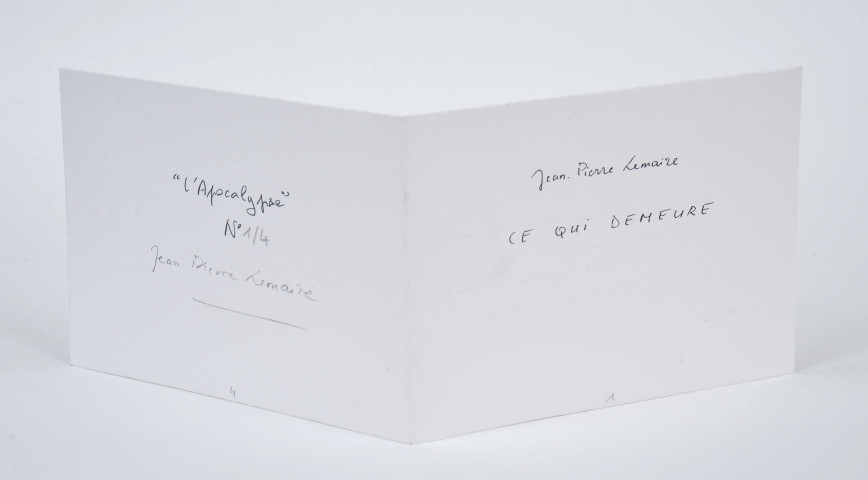 "l'Apocalypse"
N° 1/4
Jean-Pierre Lemaire
4
Jean-Pierre Lemaire
CE QUI DEMEURE
1